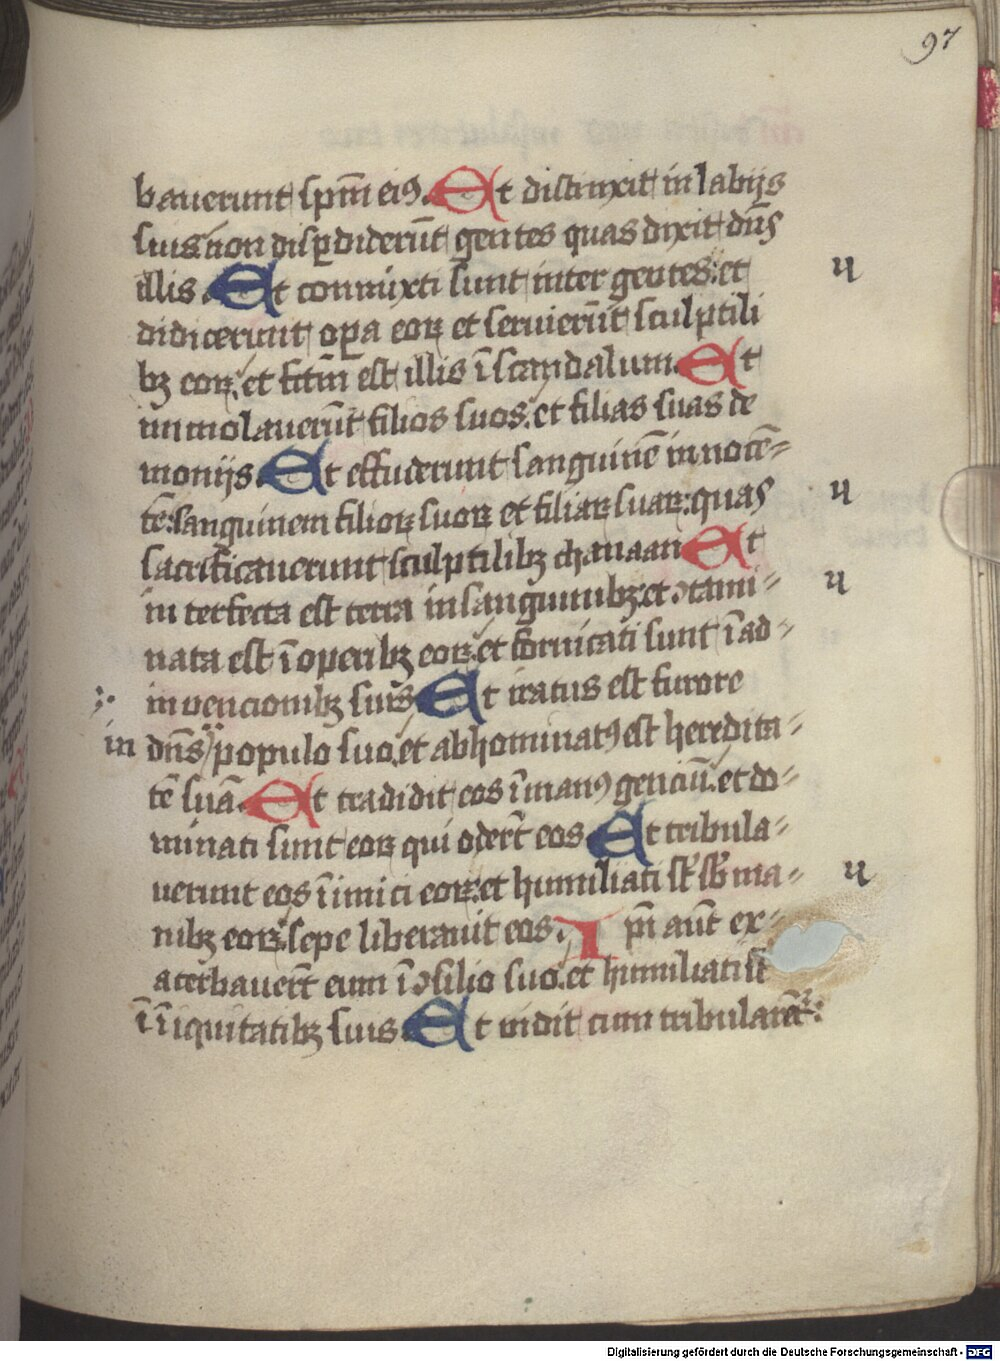 97
bauerunt spm̄ eiꝰ. Et distinxit in labijs
suis non disꝑdiderūt gentes quas dixit dn̄s
illis Et conmixti sunt inter gentes: et
didicerunt oꝑa eoꝝ et seruierūt sculptili
bꝫ eoꝝ. et fctm̄ est illis ī scandalum. Et
immolauerūt filios suos. et filias suas de
monijs. Et effuderunt sanguinē innocē⸗
tē: sanguinem filioꝝ suoꝝ et filiaꝝ suaꝝ: quas
sacrificauerunt sculptilibꝫ chanaan Et
interfecta est terra in sanguinibꝫ. et ꝯtami⸗
nata est ī operibꝫ eoꝝ. et fornicati sunt ī ad⸗
inuencionibꝫ suis Et iratus est furore
in dn̄s populo suo. et abhominatꝰ est heredita⸗
tē suā. Et tradidit eos ī manꝰ genciū. et do⸗
minati sunt eoꝝ qui odert̄ eos Et tribula⸗
uerunt eos īimici eoꝝ. et humiliati st̄ sb̄ ma⸗
nibꝫ eoꝝ. sepe liberauit eos. Ipī aūt ex⸗
acerbauert̄ eum ī ꝯsilio suo. et humiliati st̄
ī iniquitatibꝫ suis Et vidit cum tribularēt̄:
Digitalisierung gefördert durch die Deutsche Forschungsgemeinschaft - DFG